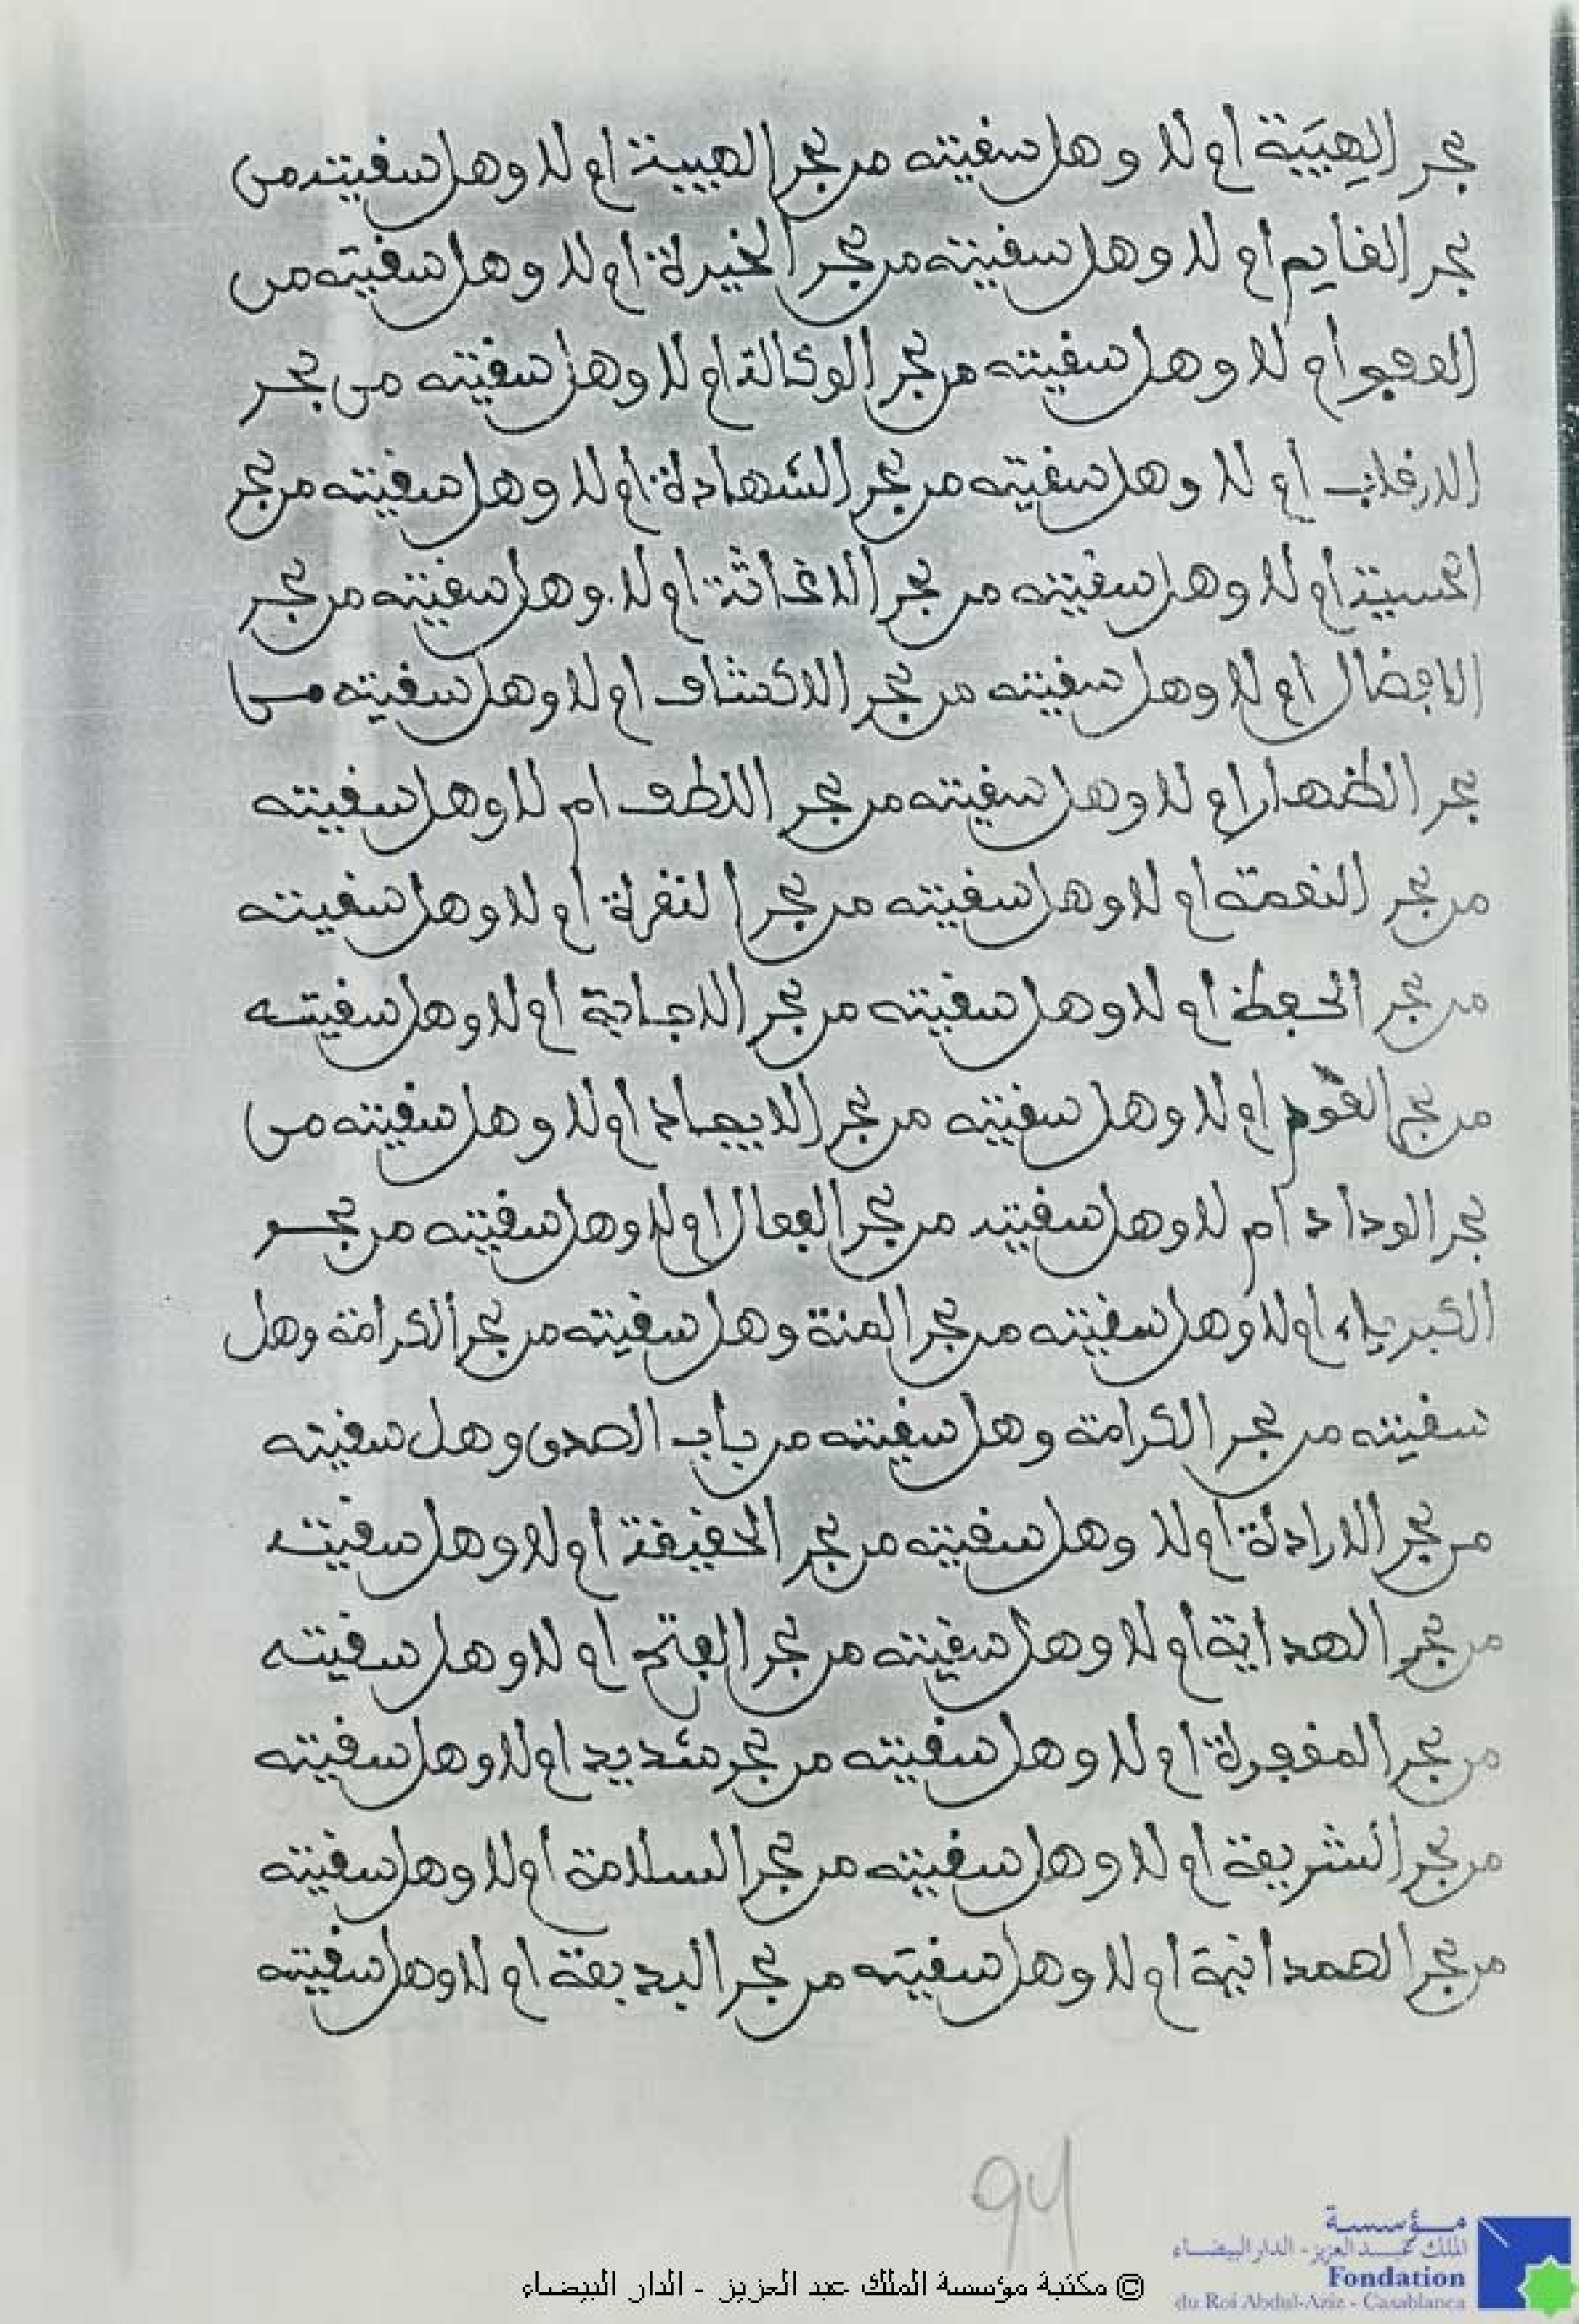 بحر الهيبة أم لا وهل سفينته من بحر الهيبة ام لا وهل سفينته من
بحر القايم أم لا وهل سفينته من بحر الخيرة أم لا وهل سفينته من
العفو أم لا وهل سفينته من بحر الوكالة ام لا وهل سفينته من بحر
أم لا وهل سفينته من بحر الشهادة أم لا وهل سفينته من بحر
ام لا وهل سفينته من بحر الاغاثة ام لا وهل سفينته من بحر
الافضال ام لا وهل سفينته من بحر الاكتشاف ام لا وهل سفينته من
بحر الظهار ام لا وهل سفينته من بحر اللطف ام لا وهل سفينته
من بحر النعمة ام لا وهل سفينته من بحر أم لا وهل سفينته
من بحر الحفظ أم لا وهل سفينته من بحر الاجابة أم لا وهل سفينته
من بحر ام لا وهل سفينته من بحر الايجاد ام لا وهل سفينته من
بحر الوداد أم لا وهل سفينته من بحر الفعال ام لا وهل سفينته من بحر
الكبرياء ام لا وهل سفينته من بحر المنة وهل سفينته من بحر الكرامة وهل
سفينته من بحر الكرامة وهل سفينته من باب الصدق وهل سفينته
من بحر الارادة أم لا وهل سفينته من بحر الحقيقة أم لا وهل سفينته
من بحر الهداية أم لا وهل سفينته من بحر الفتح أم لا وهل سفينته
من بحر المغفرة ام لا وهل سفينته من بحر شديد ام لا وهل سفينته
من بحر الشريعة ام لا وهل سفينته من بحر السلامة أم لا وهل سفينته
من بحر الهمدانية ام لا وهل سفينته من بحر البديعة ام لا وهل سفينته
94
مؤسسة
الملك عبد العزيز - الدار البيضاء
Fondation
du Roi Abdul-Aziz - Casablanca
© مكتبة مؤسسة الملك عبد العزيز - الدار البيضاء